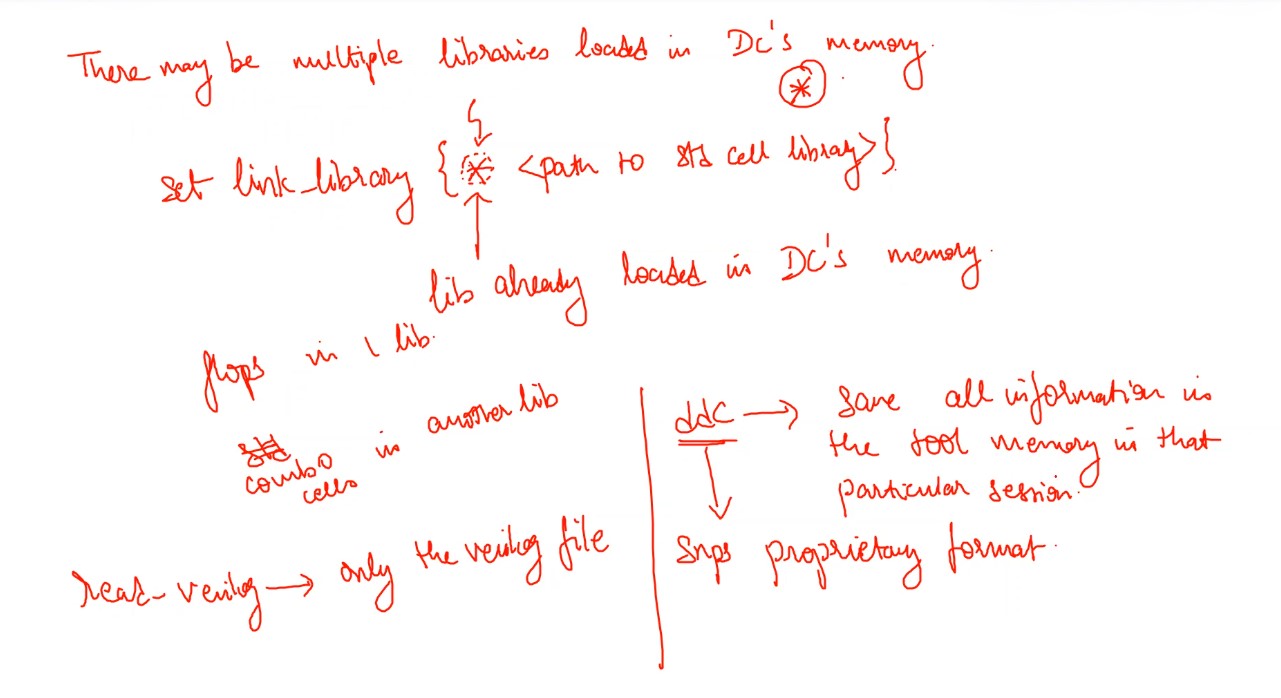 There may be multiple libraries loaded in DC's memory.
*
set link_library { * <path to std cell library> }
lib already loaded in DC's memory.
flops in 1 lib.
combo cells in another lib
read_verilog → only the verilog file
ddc → Save all information in
the tool memory in that
particular session.
Snps proprietary format.